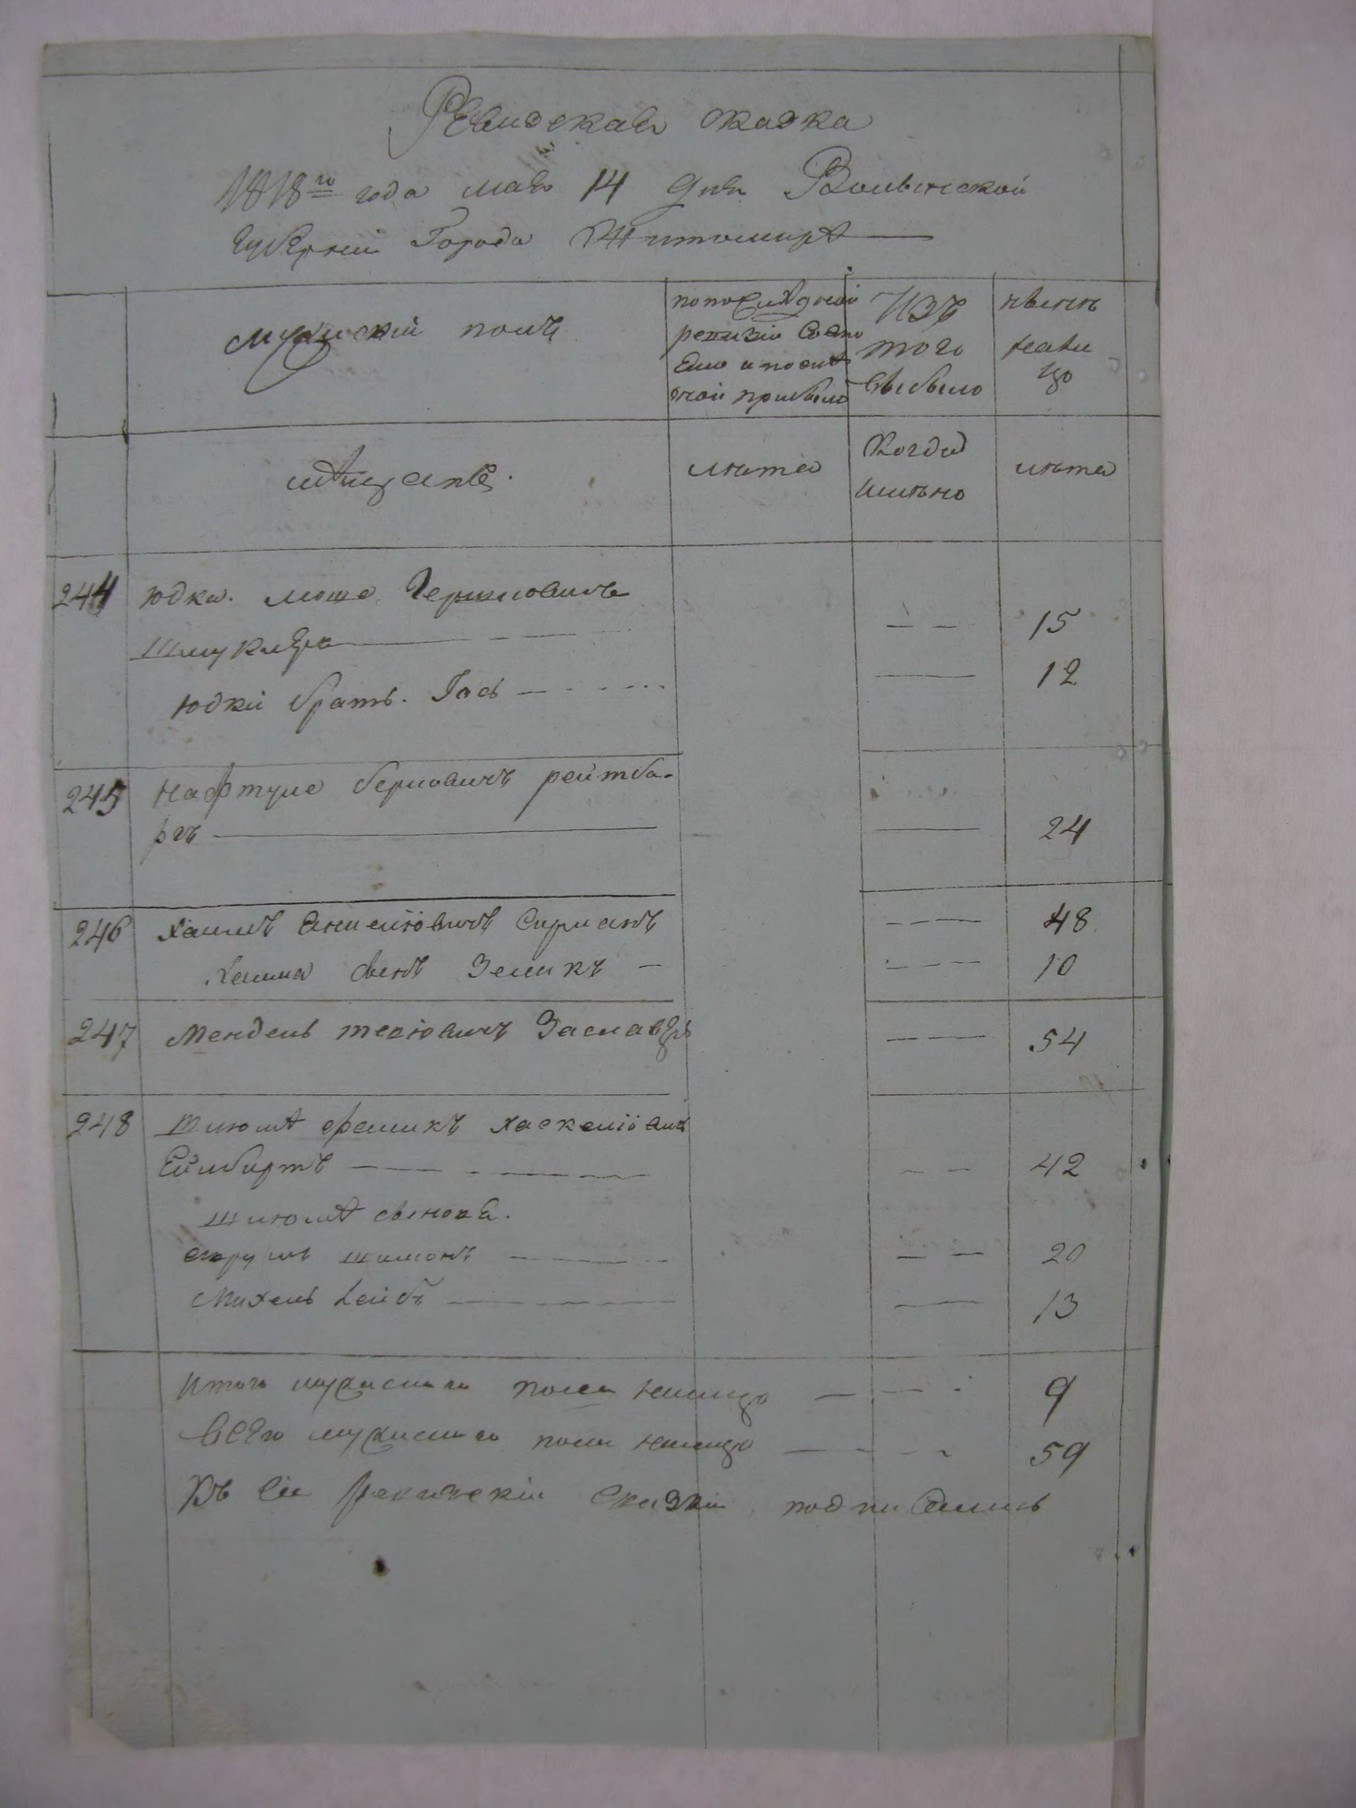 Ревизская сказка
1818го года мая 14 дня Волынской
Губернии Города Житомира
мужиский полъ
по последней
ревизии состо
яло и после
оной прибыло
Изъ
того
выбыло
нынѣ
нали
цо
мѣщане.
лѣта
Когда
имянно
лѣта
244 Юдка. Мошо Гершковичъ
Шмуклеръ 15
Юдки братъ. Іось 12
245 Нафтуле берковичъ рейтба-
ргъ 24
246 Хаимъ Аншеліовичъ 48
Хаима сынъ Зеликъ 10
247 Мендель Заславъ 54
248 Шлюма фаликъ Хаскеліовичъ
42
Шлюмы сыновя.
шимонъ 20
Михель Лейбъ 13
Итого мужиского пола налицо 9
Всего мужиского пола налицо 59
Къ сей ревизскій сказки подписались